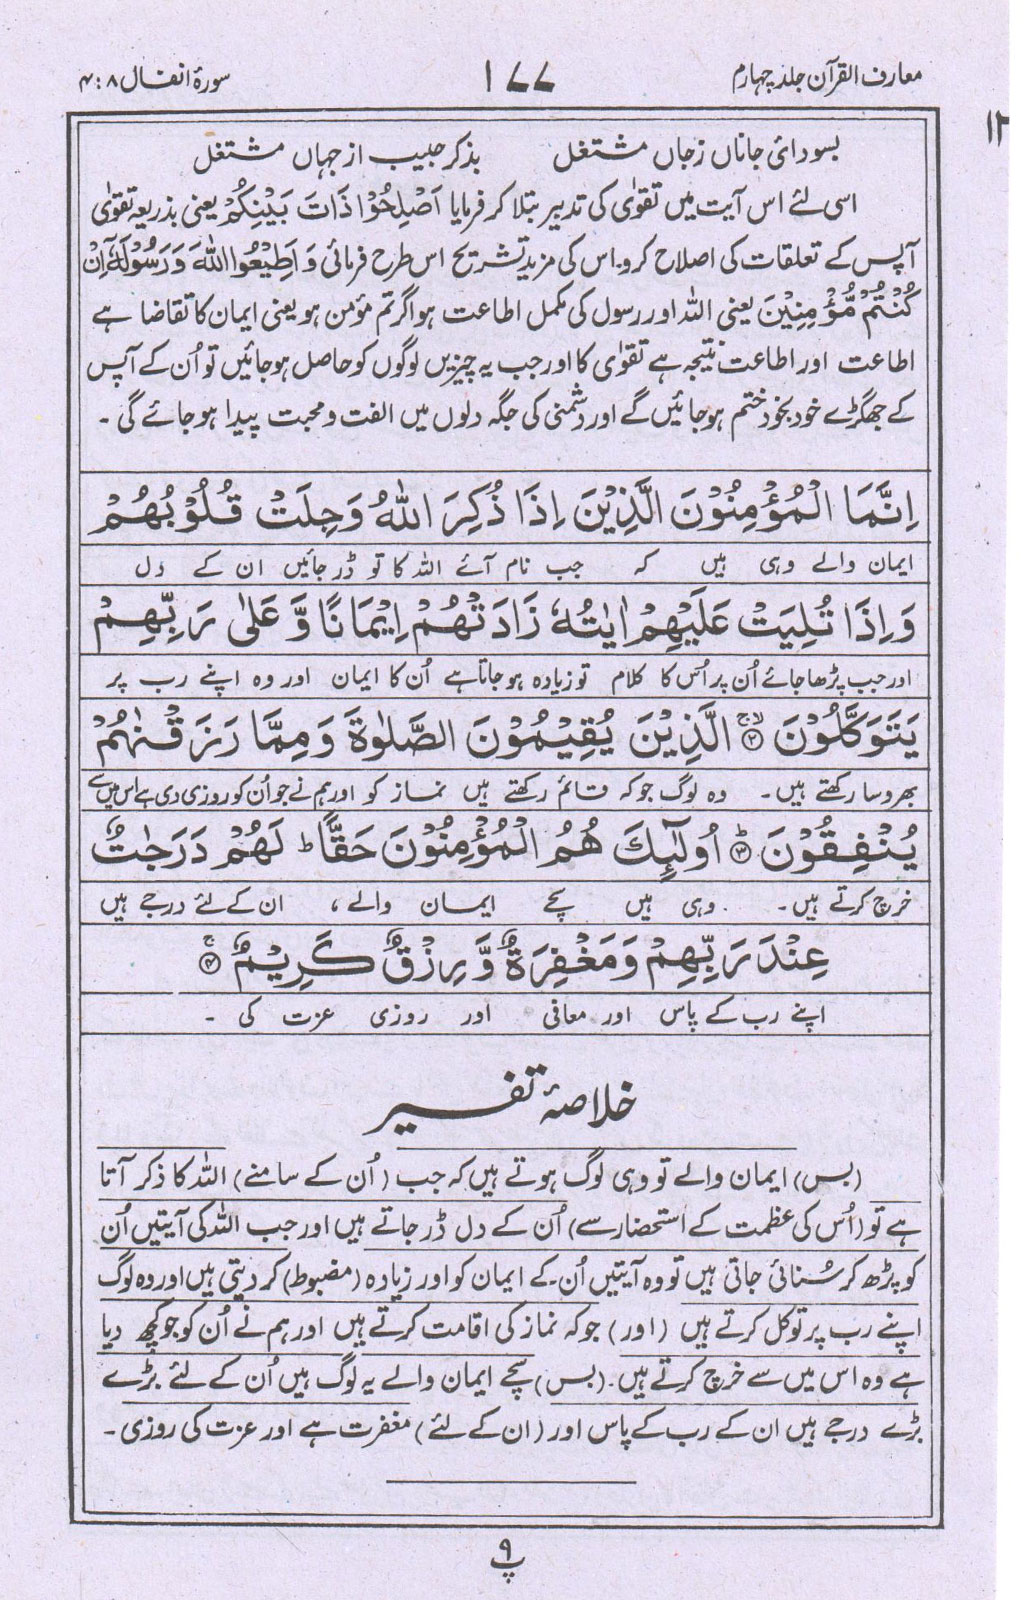 معارف القرآن جلد چہارم
۱۷۷
سورۂ انفال ۸ : ۴
۱۲
بسودائ جاناں زجاں مشتغل بذکر حبیب از جہاں مشتغل
اسی لئے اس آیت میں تقوٰی کی تدبیر بتلا کر فرمایا اَصْلِحُوْا ذَاتَ بَیْنِکُمْ یعنی بذریعہ تقوٰی
آپس کے تعلقات کی اصلاح کرو۔ اس کی مزید تشریح اس طرح فرمائی وَاَطِیْعُوا اللہَ وَرَسُوْلَہٗٓ اِنْ
کُنْتُمْ مُّؤْمِنِیْنَ یعنی اللہ اور رسول کی مکمل اطاعت ہو اگر تم مؤمن ہو یعنی ایمان کا تقاضا ہے
اطاعت اور اطاعت نتیجہ ہے تقوٰی کا اور جب یہ چیزیں لوگوں کو حاصل ہوجائیں تو اُن کے آپس
کے جھگڑے خود بخود ختم ہوجائیں گے اور دشمنی کی جگہ دلوں میں الفت و محبت پیدا ہو جائے گی ۔
اِنَّمَا الْمُؤْمِنُوْنَ الَّذِیْنَ اِذَا ذُکِرَ اللہُ وَجِلَتْ قُلُوْبُھُمْ
ایمان والے وہی ہیں کہ جب نام آئے اللہ کا تو ڈر جائیں ان کے دل
وَاِذَا تُلِیَتْ عَلَیْھِمْ اٰیٰتُہٗ زَادَتْھُمْ اِیْمَانًا وَّعَلٰی رَبِّھِمْ
اور جب پڑھا جائے اُن پر اُس کا کلام تو زیادہ ہوجاتا ہے اُن کا ایمان اور وہ اپنے رب پر
یَتَوَکَّلُوْنَ ﴿۲﴾ الَّذِیْنَ یُقِیْمُوْنَ الصَّلٰوۃَ وَمِمَّا رَزَقْنٰھُمْ
بھروسا رکھتے ہیں۔ وہ لوگ جو کہ قائم رکھتے ہیں نماز کو اور ہم نے جو اُن کو روزی دی ہے اس میں سے
یُنْفِقُوْنَ ﴿۳﴾ اُولٰٓئِکَ ھُمُ الْمُؤْمِنُوْنَ حَقًّا ط لَھُمْ دَرَجٰتٌ
خرچ کرتے ہیں۔ وہی ہیں سچے ایمان والے ، ان کے لئے درجے ہیں
عِنْدَ رَبِّھِمْ وَمَغْفِرَۃٌ وَّرِزْقٌ کَرِیْمٌ ﴿۴﴾
اپنے رب کے پاس اور معافی اور روزی عزت کی ۔
خلاصۂ تفسیر
(بس) ایمان والے تو وہی لوگ ہوتے ہیں کہ جب (اُن کے سامنے) اللہ کا ذکر آتا
ہے تو (اُس کی عظمت کے استحضار سے) اُن کے دل ڈر جاتے ہیں اور جب اللہ کی آیتیں اُن
کو پڑھ کر سُنائی جاتی ہیں تو وہ آیتیں اُن کے ایمان کو اور زیادہ (مضبوط) کر دیتی ہیں اور وہ لوگ
اپنے رب پر توکل کرتے ہیں (اور) جو کہ نماز کی اقامت کرتے ہیں اور ہم نے اُن کو جو کچھ دیا
ہے وہ اس میں سے خرچ کرتے ہیں۔ (بس) سچے ایمان والے یہ لوگ ہیں اُن کے لئے بڑے
بڑے درجے ہیں ان کے رب کے پاس اور (ان کے لئے) مغفرت ہے اور عزت کی روزی ۔
۹
پ